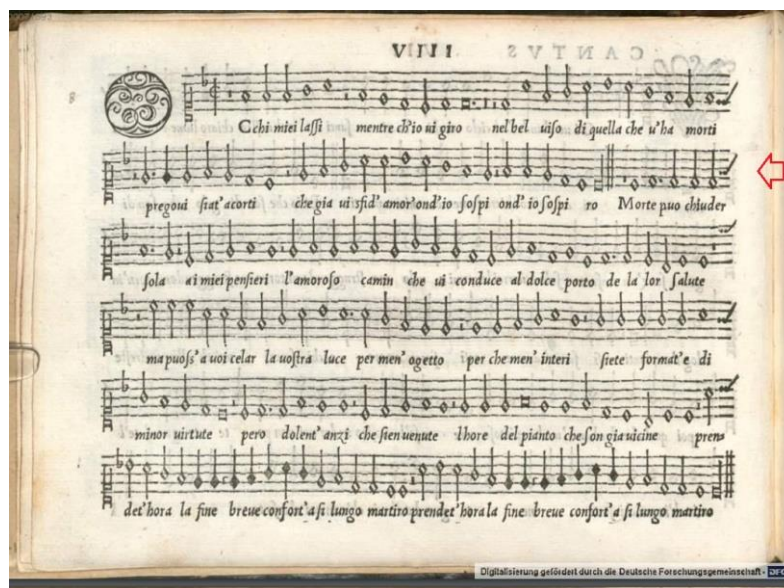 CANTVS VIIII
Occhi miei lassi mentre ch'io ui giro nel bel uiso di quella che u'ha morti
pregoui siat'acorti che gia ui sfid'amor'ond'io sospi ond'io sospi ro Morte puo chiuder
sola ai miei pensieri l'amoroso camin che ui conduce al dolce porto de la lor salute
ma puoss'a uoi celar la uostra luce per men'ogetto i per che men'interi siete format'e di
minor uirtute pero dolent'anzi che sien uenute l'hore del pianto che son gia uicine pren=
det'hora la fine breue confort'a si lungo martiro prendet'hora la fine breue confort'a si lungo martiro
Digitalisierung gefördert durch die Deutsche Forschungsgemeinschaft -